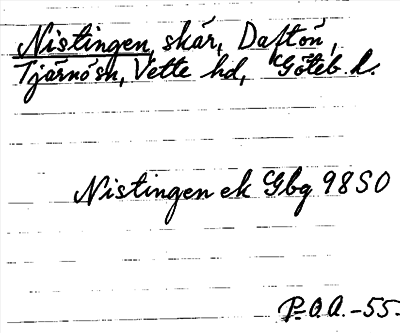 Nistingen, skär, Daftön,
Tjärnö sn, Vette hd, Göteb. l.
Nistingen ek Gbg 98 SO
P.O.A. -55.